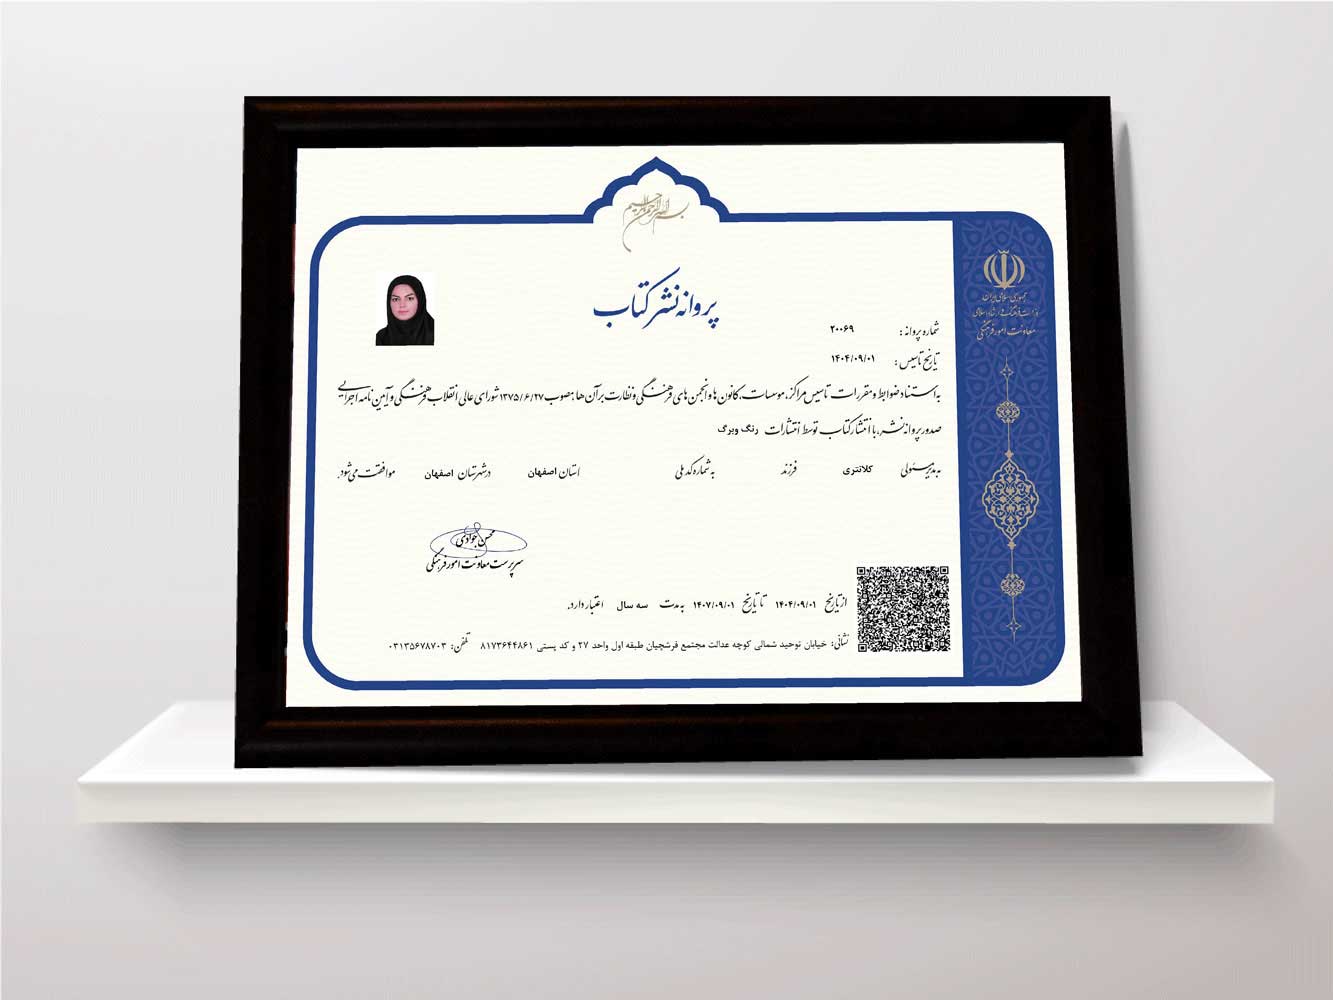 بسم الله الرحمن الرحیم
جمهوری اسلامی ایران
وزارت فرهنگ و ارشاد اسلامی
معاونت امور فرهنگی
پروانه نشر کتاب
شماره پروانه: ۲۰۰۶۹
تاریخ تاسیس: ۱۴۰۴/۰۹/۰۱
به استناد ضوابط و مقررات تاسیس مراکز، موسسات، کانون ها و انجمن های فرهنگی و نظارت بر آن ها مصوب ۱۳۷۵/۶/۲۷ شورای عالی انقلاب فرهنگی و آیین نامه اجرایی
صدور پروانه نشر، با انتشار کتاب توسط انتشارات رنگ وبرگ
به مدیر مسئولی کلانتری فرزند به شماره کد ملی استان اصفهان در شهرستان اصفهان موافقت می شود.
محسن جوادی
سرپرست معاونت امور فرهنگی
از تاریخ ۱۴۰۴/۰۹/۰۱ تا تاریخ ۱۴۰۷/۰۹/۰۱ به مدت سه سال اعتبار دارد.
نشانی: خیابان توحید شمالی کوچه عدالت مجتمع فرشچیان طبقه اول واحد ۲۷ و کد پستی ۸۱۷۳۶۴۴۸۶۱ تلفن: ۰۳۱۳۵۶۷۸۷۰۳